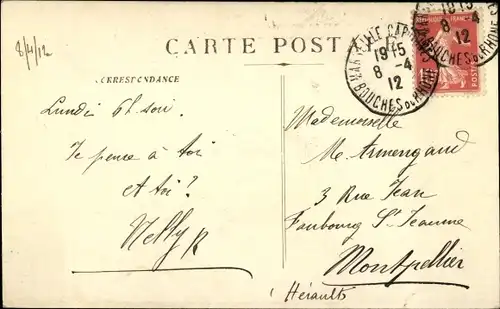 8/4/12
CARTE POSTALE
CORRESPONDANCE
MARSEILLE CAPUCINES
19 15
8 - 4
12
BOUCHES DU RHONE
19 15
8 - 4
12
BOUCHES DU RHONE
POSTES
Lundi 6h soir.
Je pense à toi
et toi ?
Nelly
Mademoiselle
M. Armengaud
3 Rue Jean
Faubourg St Jeaume
Montpellier
Hérault